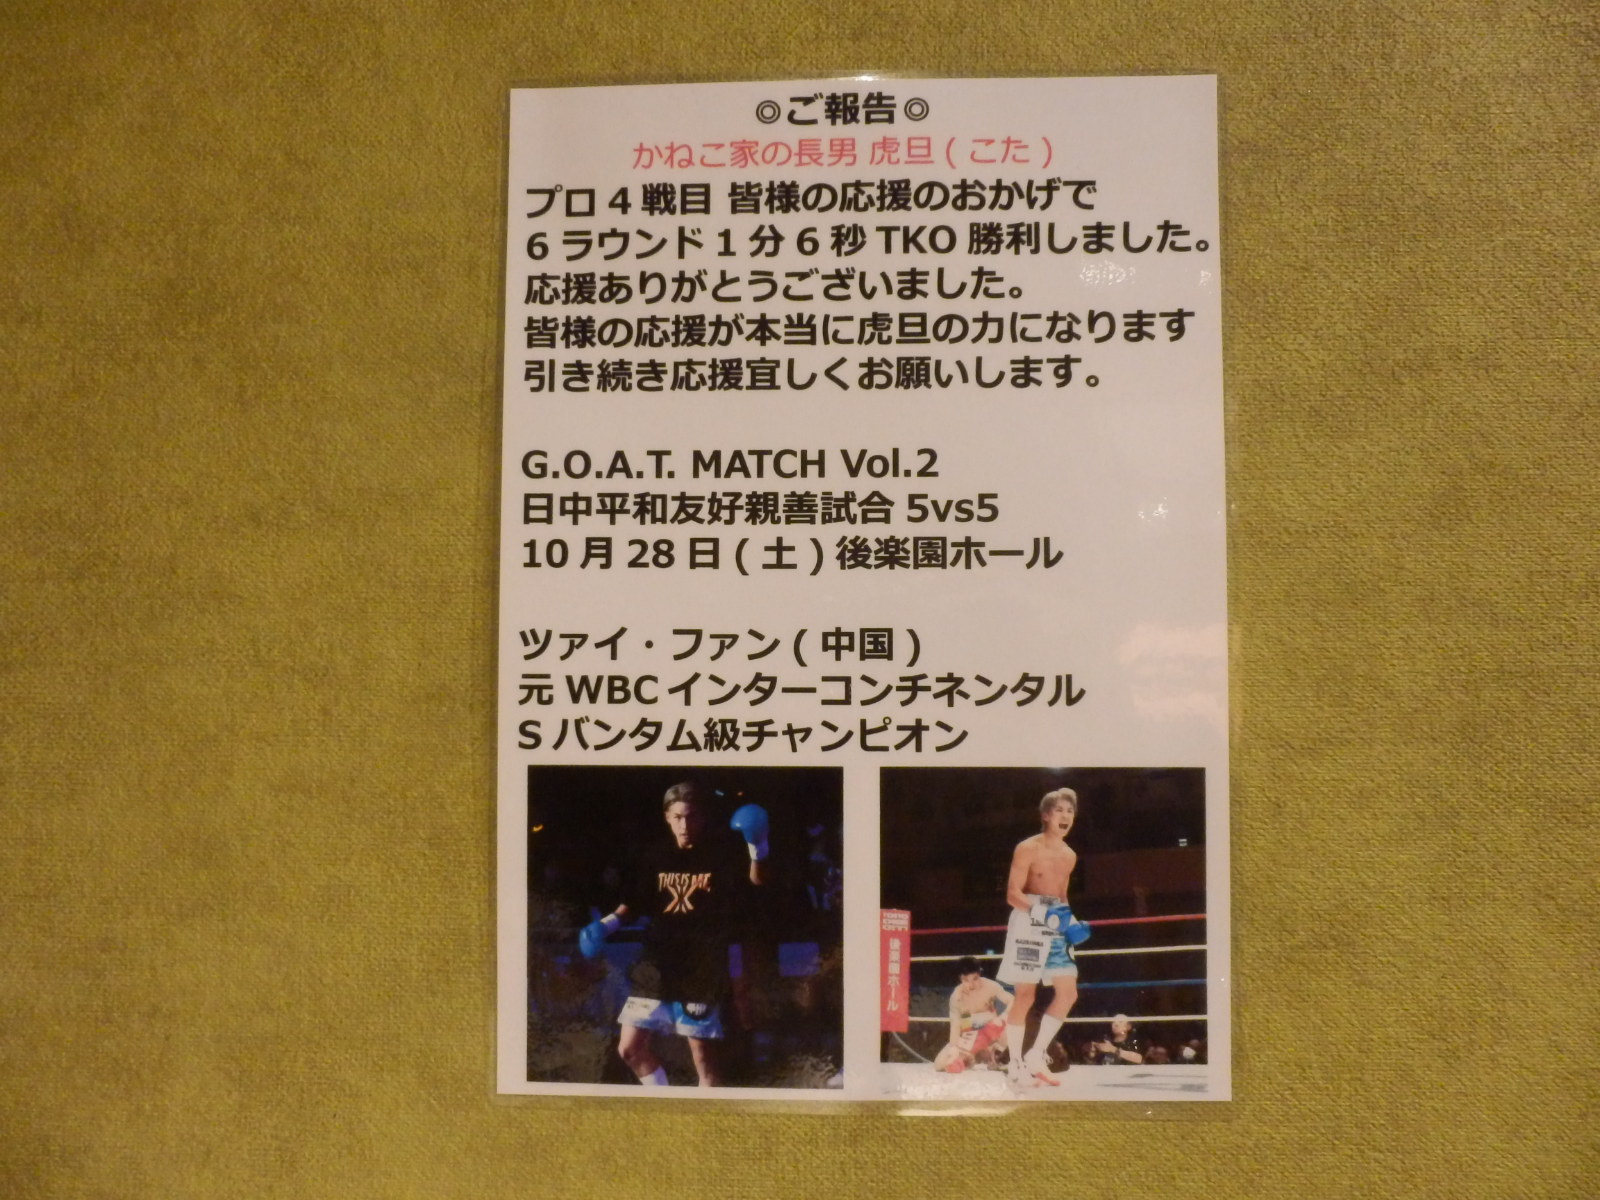 ◎ご報告◎
かねこ家の長男 虎旦(こた)
プロ4戦目 皆様の応援のおかげで
6ラウンド1分6秒TKO勝利しました。
応援ありがとうございました。
皆様の応援が本当に虎旦の力になります
引き続き応援宜しくお願いします。
G.O.A.T. MATCH Vol.2
日中平和友好親善試合 5vs5
10月28日(土)後楽園ホール
ツァイ・ファン(中国)
元WBCインターコンチネンタル
Sバンタム級チャンピオン
THIS IS ME.
後楽園ホール